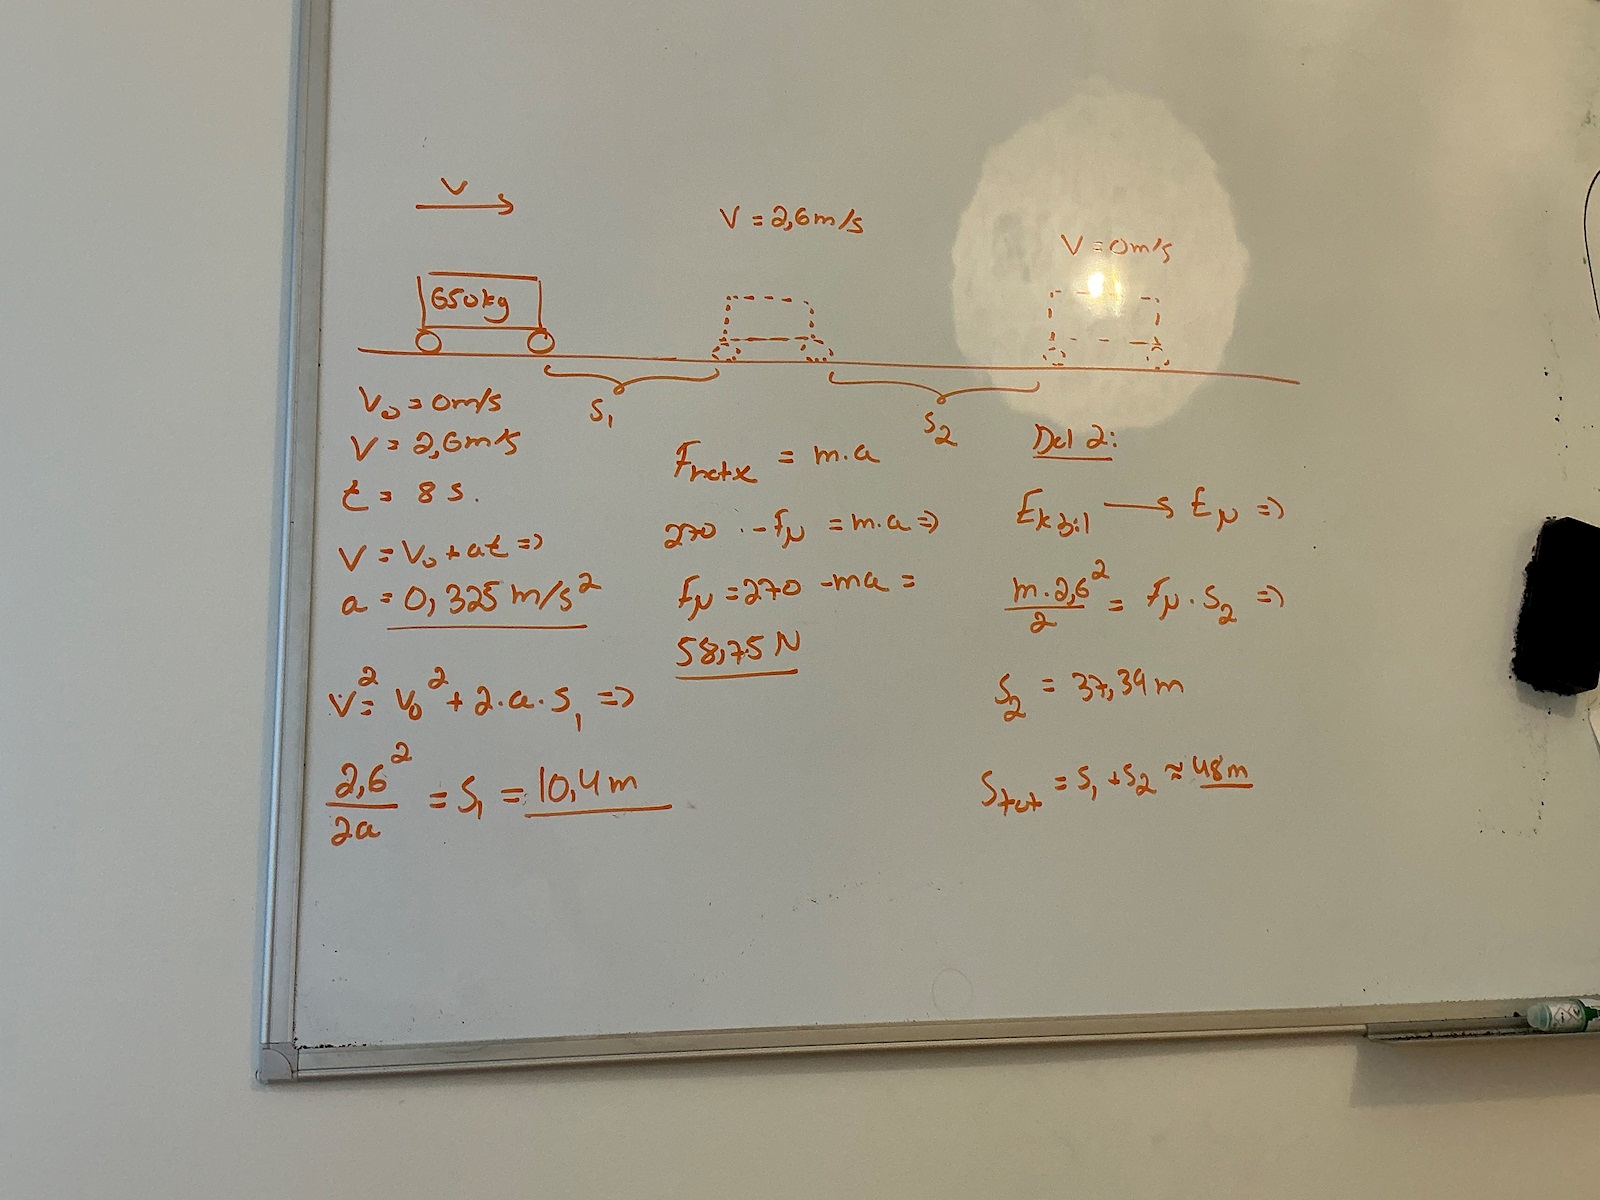 V
V = 2,6 m/s
V = 0 m/s
650 kg
S₁
S₂
V₀ = 0 m/s
V = 2,6 m/s
t = 8 s.
V = V₀ + at =>
a = 0,325 m/s²
V² = V₀² + 2·a·S₁ =>
2,6²/2a = S₁ = 10,4 m
Fnetx = m·a
270 - Fμ = m·a =>
Fμ = 270 - ma =
58,75 N
Del 2:
Ek3:1 → Eμ =>
m·2,6²/2 = Fμ · S₂ =>
S₂ = 37,39 m
Stot = S₁ + S₂ ≈ 48 m